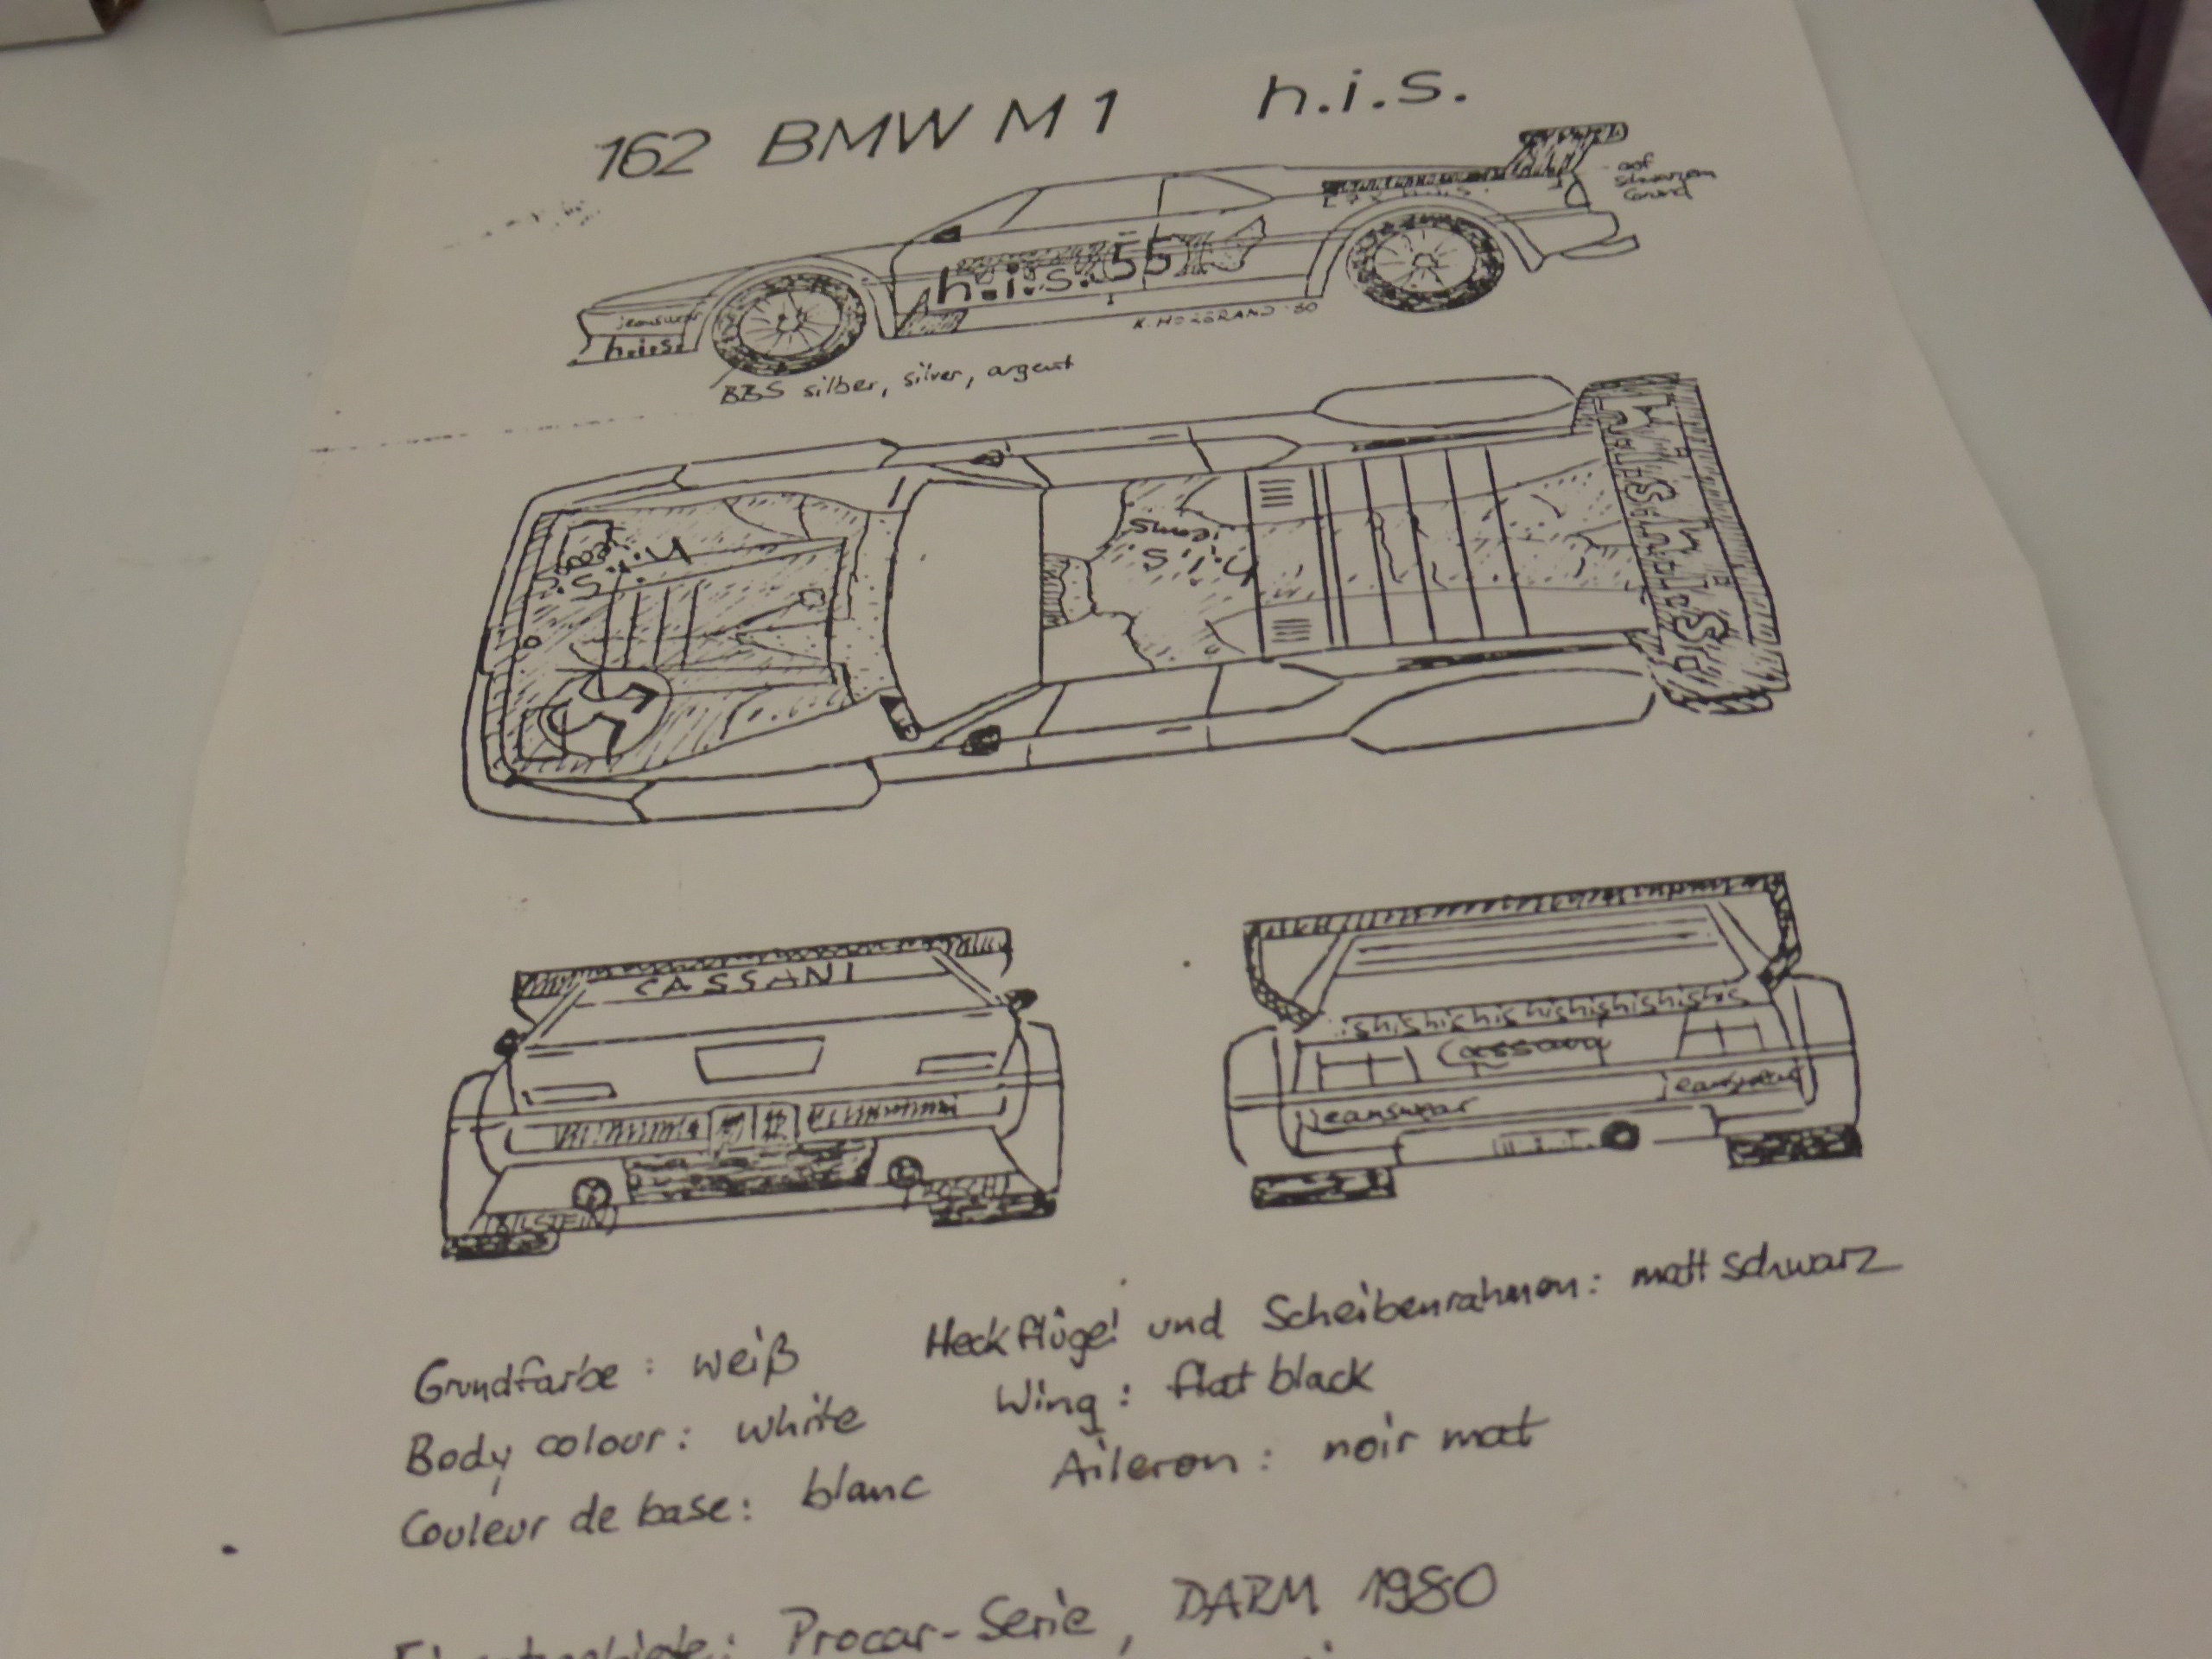 162 BMW M 1 h.i.s.
auf
schwarzem
Grund
h.i.s. 55
jeanswear
h.i.s.
BBS silber, silver, argent
h.i.s.
jeans
h.i.s.
jeans
CASSANI
BILSTEIN
BOSCH
hishishishishishishishis
Cassani
jeanswear
jeanswear
Grundfarbe: weiß Heckflügel und Scheibenrahmen: matt schwarz
Body colour: white Wing: flat black
Couleur de base: blanc Aileron: noir mat
Procar-Serie, DARM 1980